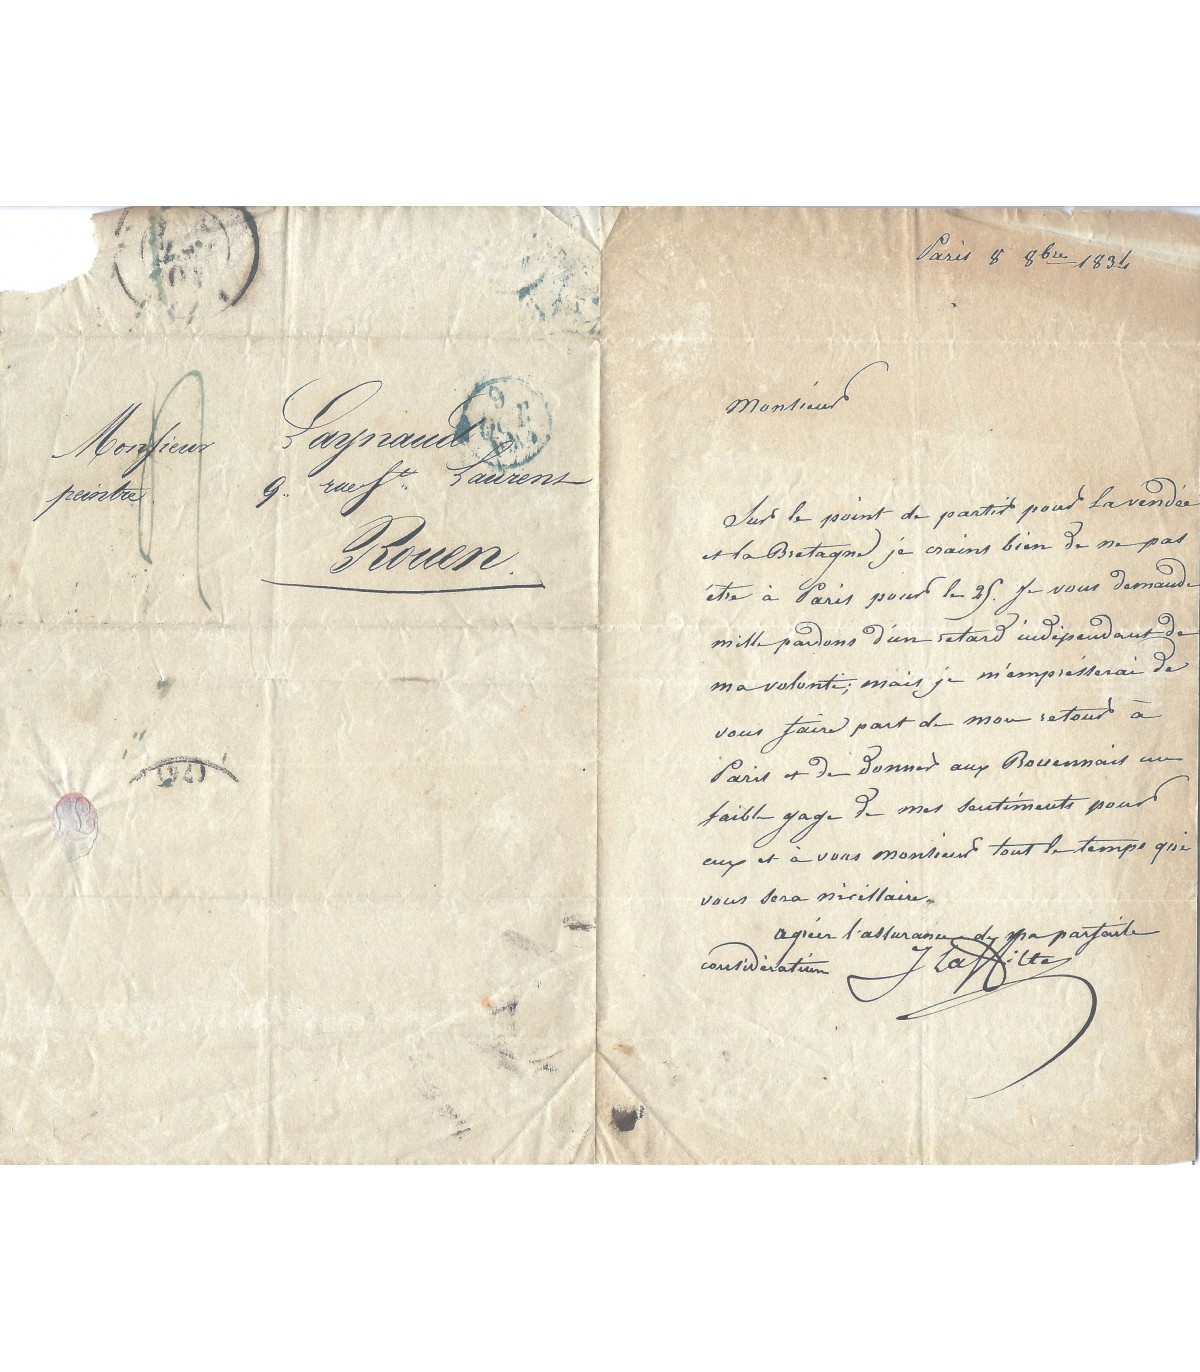 Monsieur Laynaud
peintre 9. rue St. Laurent
Rouen.
9
Paris 8 8bre 1834
Monsieur
Sur le point de partir pour La vendée
et la Bretagne, je crains bien de ne pas
être à Paris pour le 25. Je vous demande
mille pardons d'un retard indépendant de
ma volonté; mais je m'empresserai de
vous faire part de mon retour à
Paris et de donner aux Rouennais un
faible gage de mes sentiments pour
eux et à vous monsieur tout le temps que
vous sera nécessaire.
agréer l'assurance de ma parfaite
considération J Laffitte